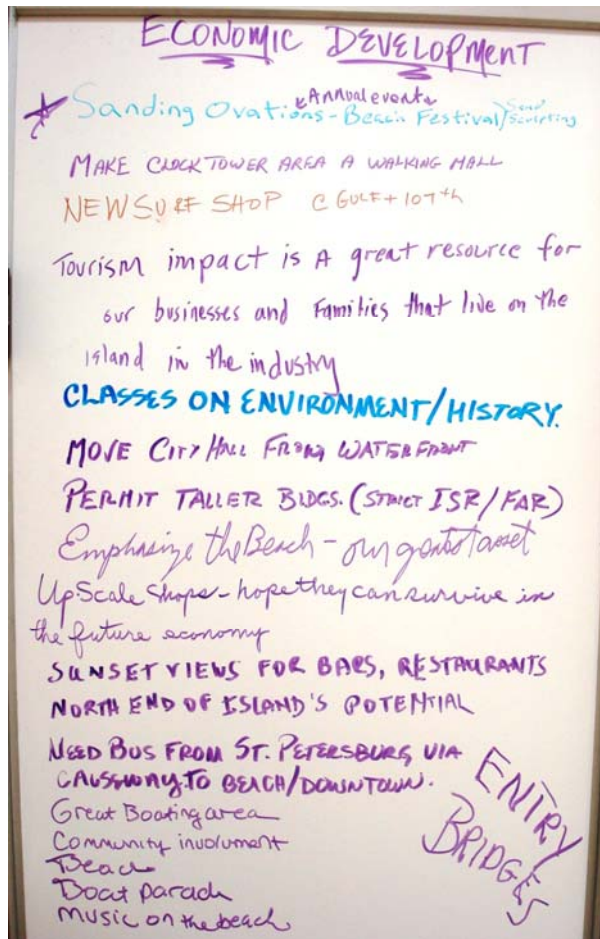 ECONOMIC DEVELOPMENT
Annual event
Sanding Ovations - Beach Festival/Sand Sculpting
MAKE CLOCK TOWER AREA A WALKING MALL
NEW SURF SHOP @ GULF + 107th
Tourism impact is A great resource for
our businesses and families that live on the
island in the industry
CLASSES ON ENVIRONMENT/HISTORY.
MOVE CITY HALL FROM WATERFRONT
PERMIT TALLER BLDGS. (STRICT ISR/FAR)
Emphasize the Beach - our greatest asset
UpScale Shops - hope they can survive in
the future economy
SUNSET VIEWS FOR BARS, RESTAURANTS
NORTH END OF ISLAND'S POTENTIAL
NEED BUS FROM ST. PETERSBURG VIA
CAUSEWAY TO BEACH/DOWNTOWN.
Great Boating area
Community involvment
Beach
Boat parade
Music on the beach
ENTRY
BRIDGES